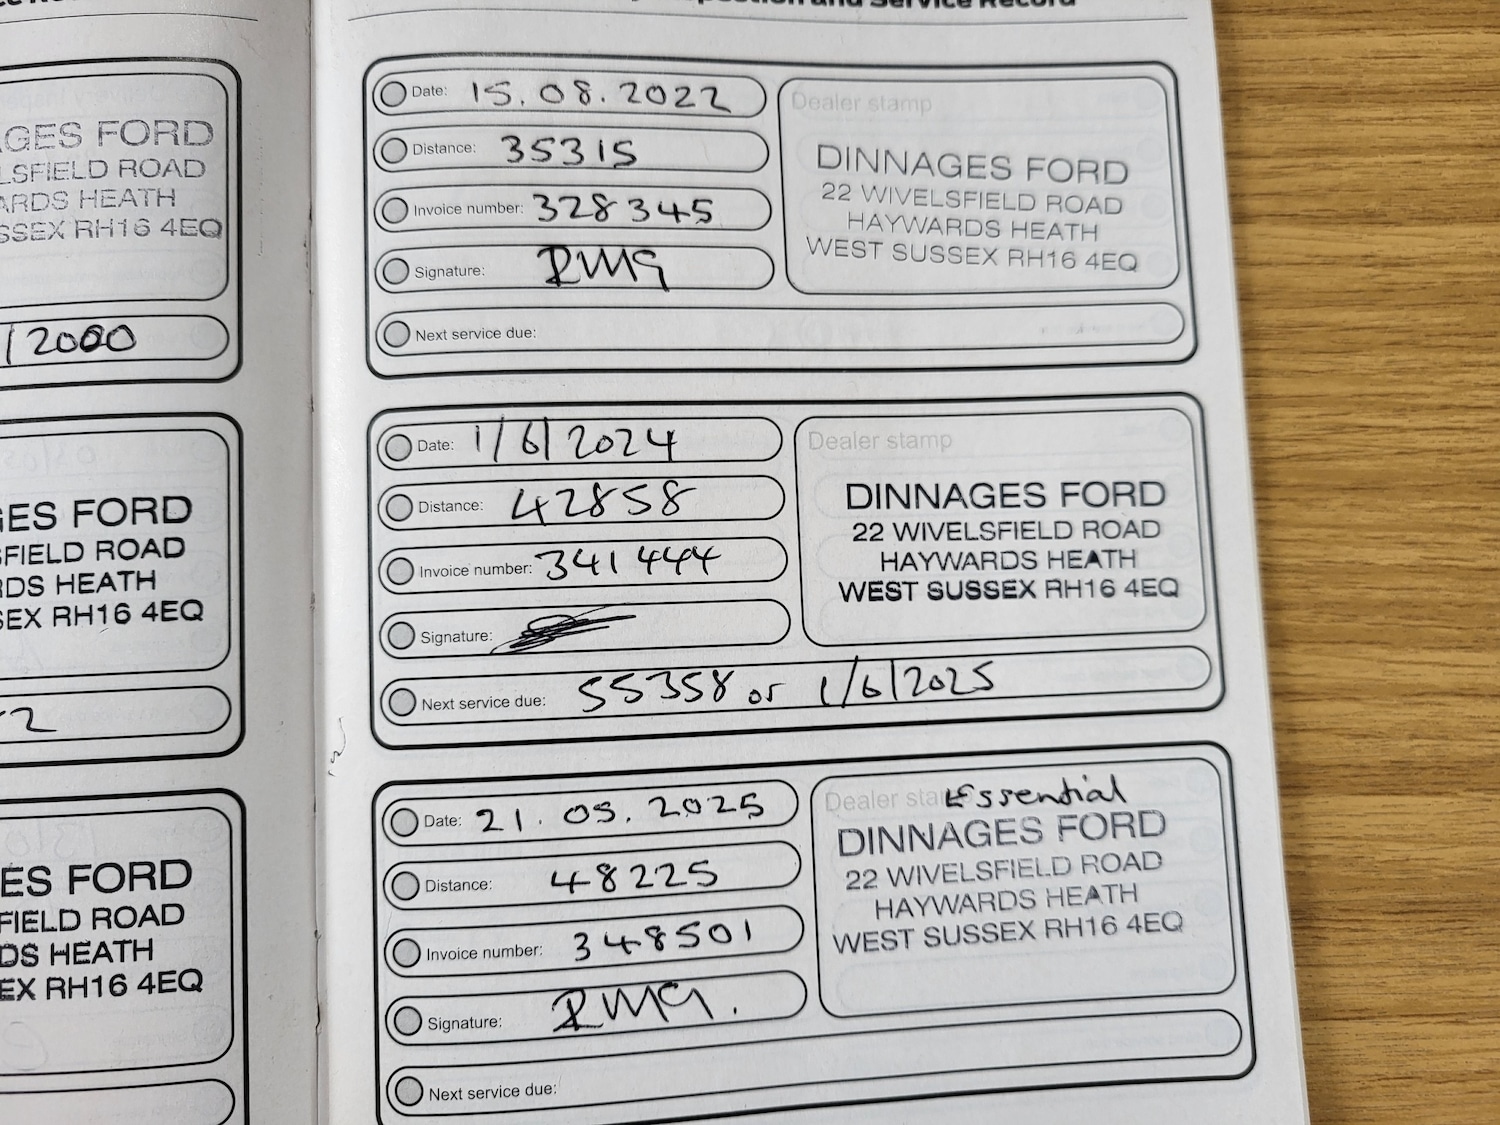 Service Record
GES FORD
LSFIELD ROAD
ARDS HEATH
SSEX RH16 4EQ
/2000
ES FORD
FIELD ROAD
DS HEATH
SEX RH16 4EQ
2
ES FORD
FIELD ROAD
DS HEATH
EX RH16 4EQ
Date: 15.08.2022
Distance: 35315
Invoice number: 328345
Signature:
Next service due:
Dealer stamp
DINNAGES FORD
22 WIVELSFIELD ROAD
HAYWARDS HEATH
WEST SUSSEX RH16 4EQ
Date: 1/6/2024
Distance: 42858
Invoice number: 341444
Signature:
Next service due: 55358 or 1/6/2025
Dealer stamp
DINNAGES FORD
22 WIVELSFIELD ROAD
HAYWARDS HEATH
WEST SUSSEX RH16 4EQ
Date: 21.05.2025
Distance: 48225
Invoice number: 348501
Signature:
Next service due:
Dealer stamp Essential
DINNAGES FORD
22 WIVELSFIELD ROAD
HAYWARDS HEATH
WEST SUSSEX RH16 4EQ